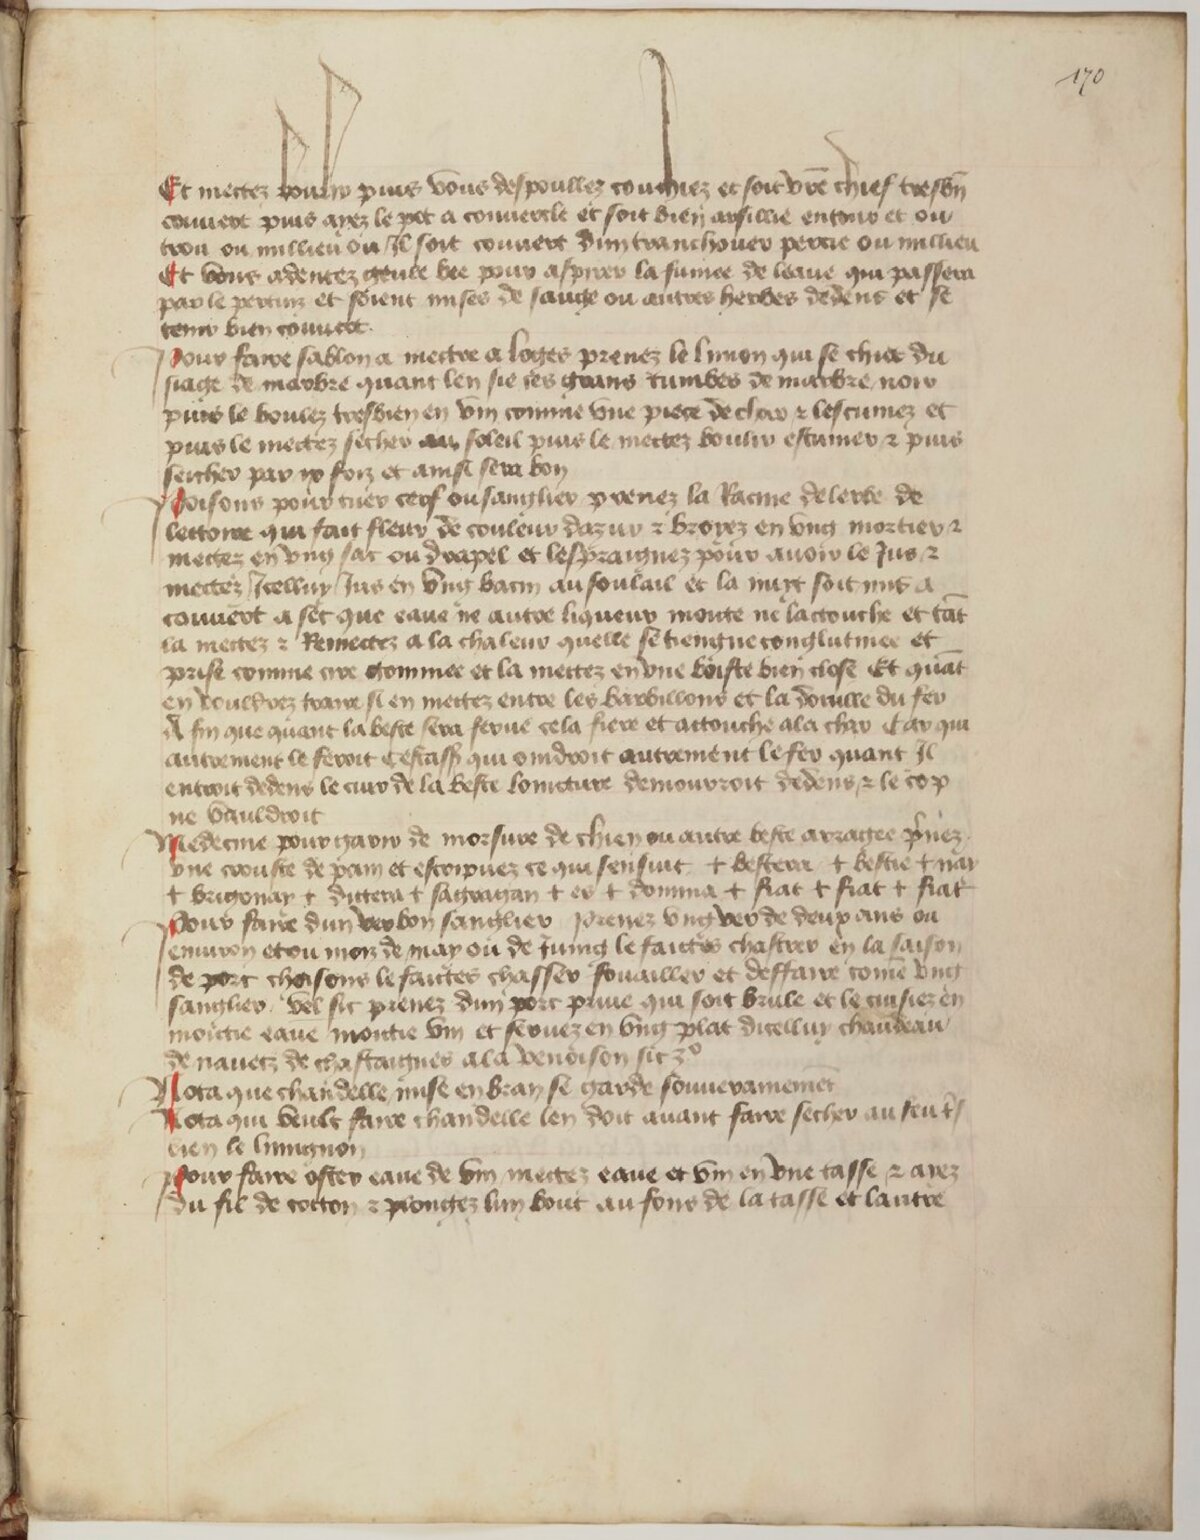 170
Et mettez boulir puis vous despoullez couchiez et soit vr̃e chief tresbñ
couvert puis ayez le pot a couvercle et soit bien arsillié entour et ou
trou ou millieu ou Il soit couvert dun tranchouer percie ou millieu
Et vous adentez geule bee pour aspirer la fumee de leaue qui passera
par le pertuiz et soient mises de sauge ou autres herbes dedens et se
tenir bien couvert
Pour faire sablon a mettre a loges prenez le limon qui se chiet du
siage de marbre quant len sie ces grans tumbes de marbre noir
puis le boulez tresbien en vin comme vne piece de char ⁊ lescumez et
puis le mettez secher au soleil puis le mettez boulir escumer ⁊ puis
seicher par ix foiz et ainsi sera bon
Poisons pour tuer cerf ou sanglier prenez la Racine de lerbe de
lectoire qui fait fleur de couleur dazur ⁊ broyez en vng mortier ⁊
mettez en vng sac ou drapel et lespraignez pour avoir le Jus ⁊
mettez Icelluy Jus en vng bacin au soulail et la nuyt soit mis a
couvert a sec que eaue ne autre liqueur moite ne lactouche et tãt
la mettez ⁊ Remettez a la chaleur quelle se tiengne conglutinee et
prise comme cire gommee et la mettez en vne boiste bien close Et quãt
en vouldrez traire si en mettez entre les barbillons et la douille du fer
A fin que quant la beste sera ferue cela fiere et attouche a la char Car qui
autrement le feroit Cestass̃ qui oindroit autrement le fer quant Il
entroit dedens le cuir de la beste loincture demourroit dedens ⁊ le cop
ne vauldroit
Medecine pour garir de morsure de chien ou autre beste arragee p̃nez
vne crouste de pain et escripuez ce qui sensuit + bestera + bestie + nay
+ brigonay + dictera + sagragan + es + domina + fiat + fiat + fiat
Pour faire dun ver bon sanglier prenez vng ver de deux ans ou
environ et ou moiz de may ou de Juing le faictes chastrer en la saison
de porc choisons le faictes chasser fouailler et deffaire com̃e vng
sanglier vel sic prenez dun porc prive qui soit brule et le cuisiez en
moictie eaue moictie vin et servez en vng plat dicelluy chaudeau
de navetz de chastaignes a la venoison sic 3º
Nota que chandelle mise en bran se garde souverainemẽt
Nota qui veult faire chandelle len doit avant faire secher au feu
bien le limignon
Pour faire oster eaue de vin mettez eaue et vin en vne tasse ⁊ ayez
du fil de cotton ⁊ plongez lun bout au fons de la tasse et lautre